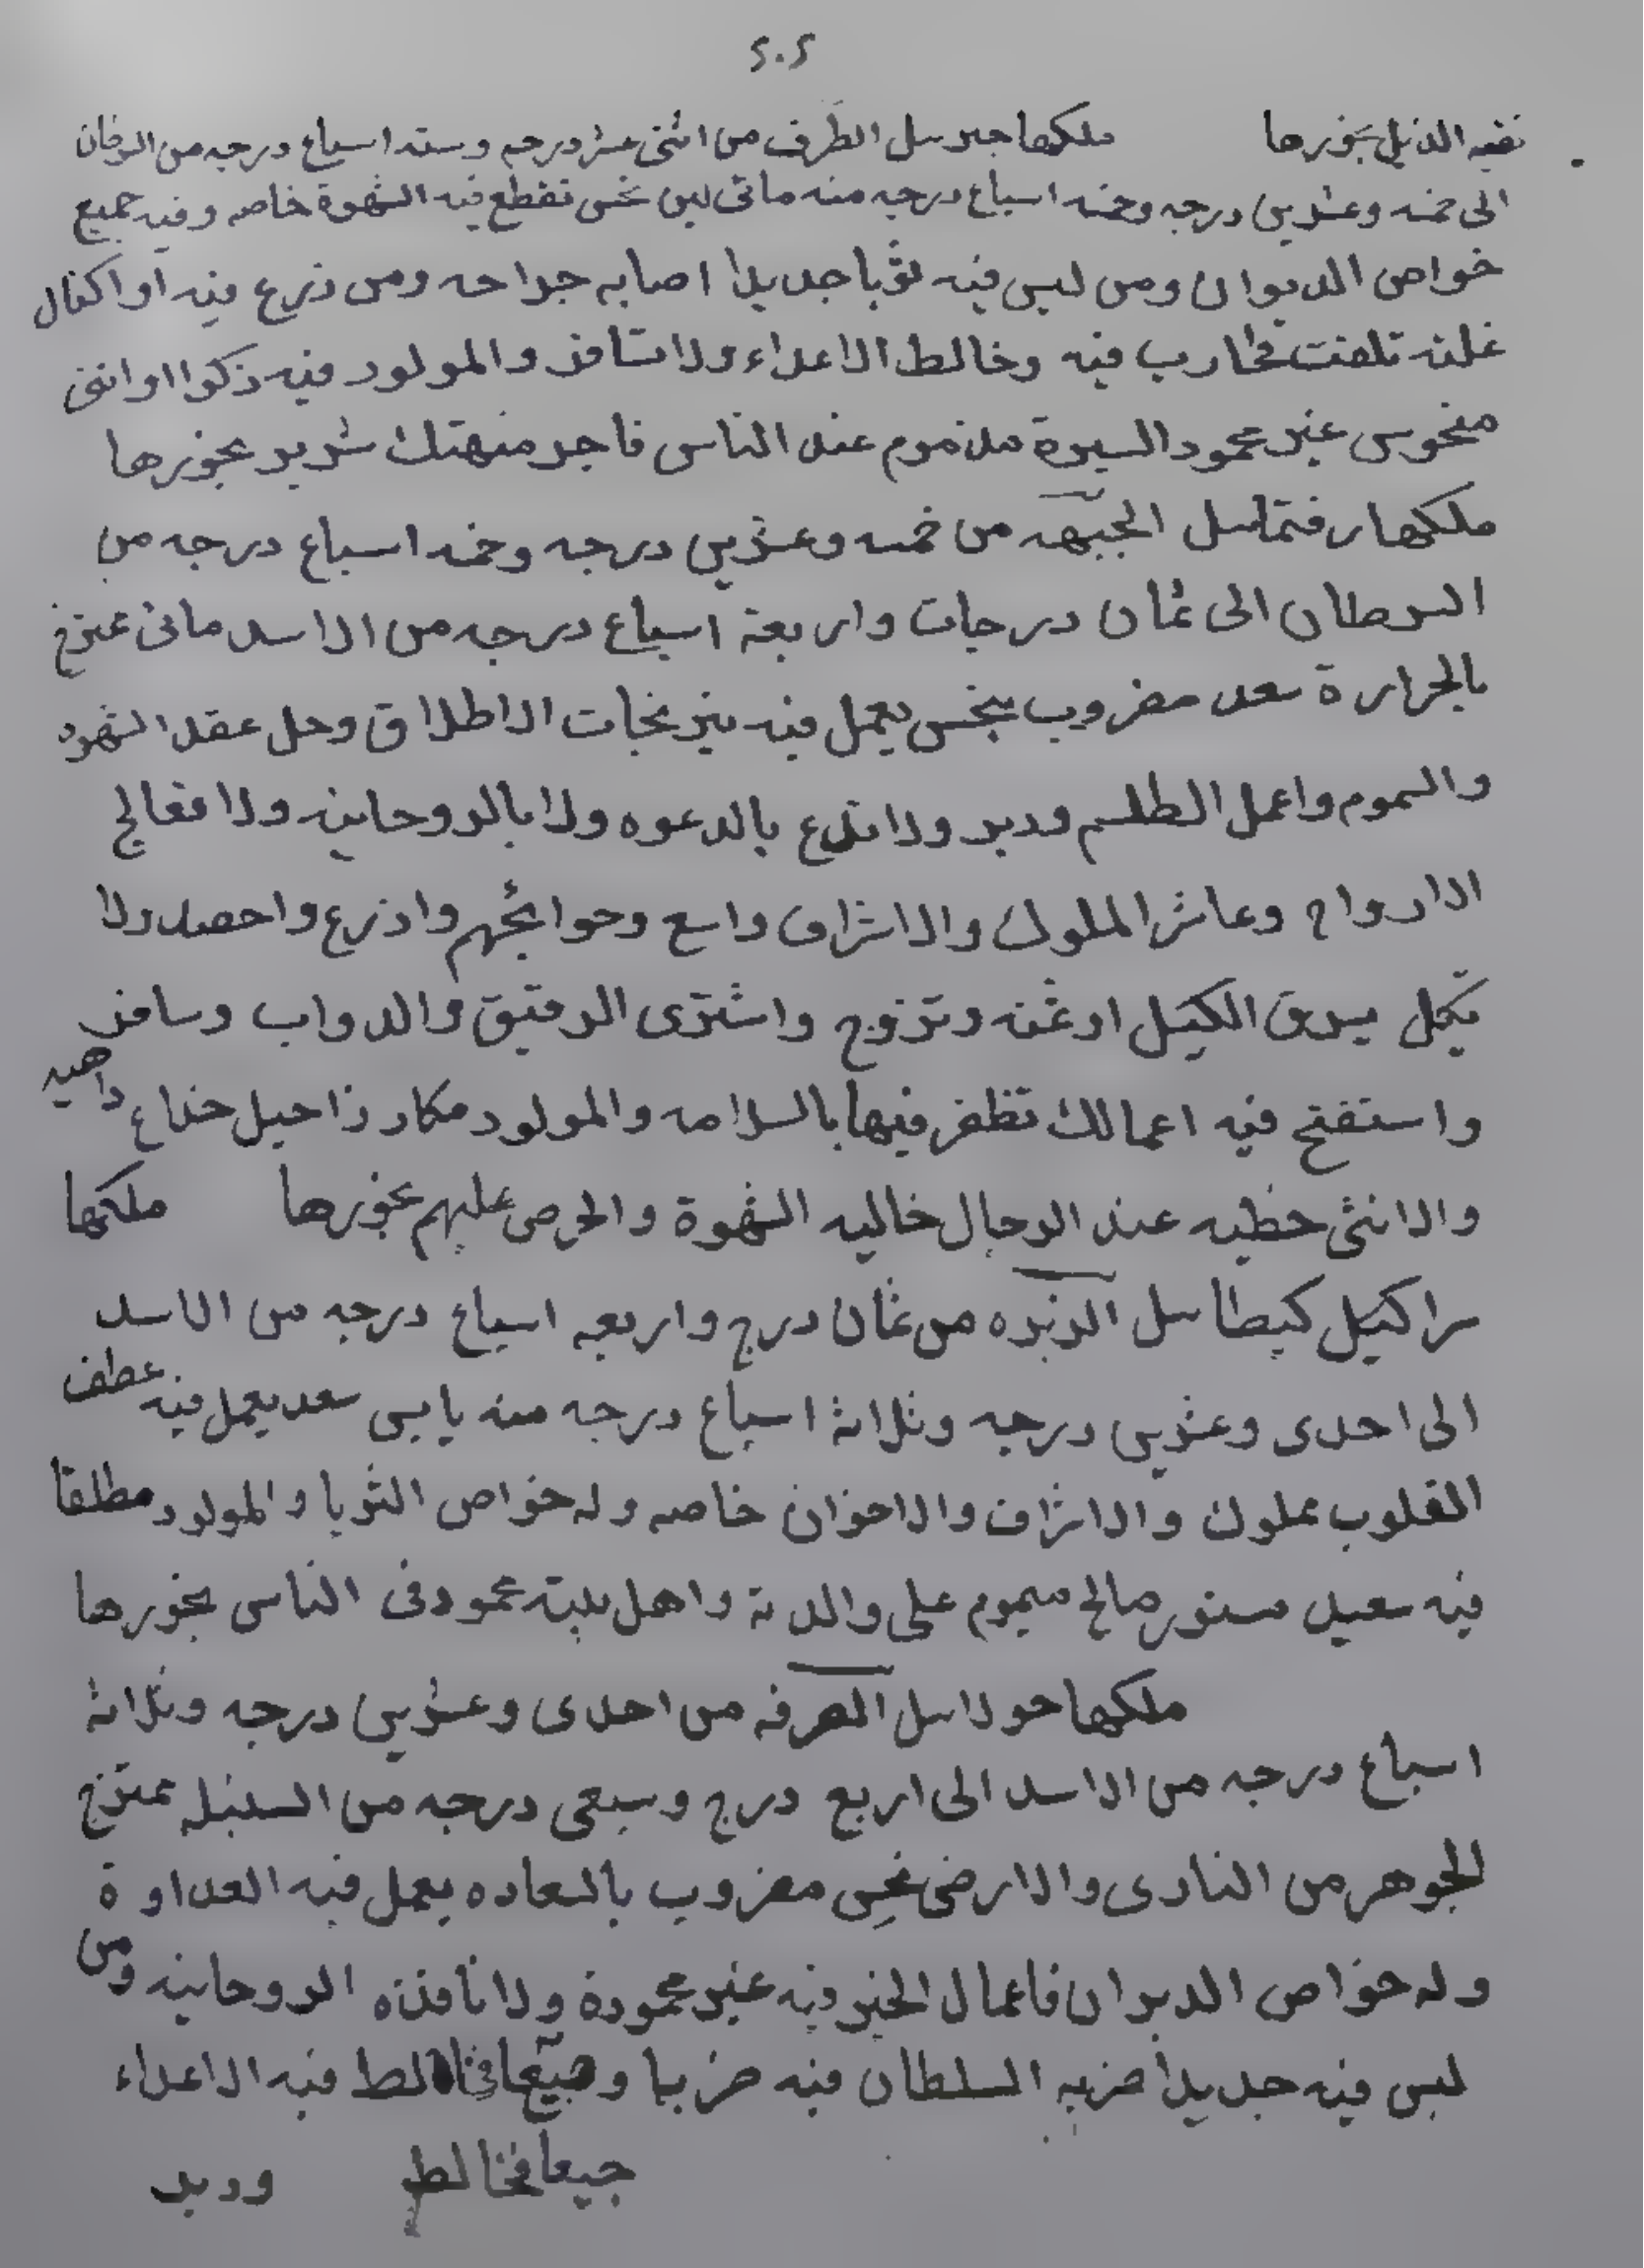 ٢٠٢
نقيه الذيل بخورها ملكها جبرسل الطرف من اثنى عشر درجه وستة اسباع درجه من السرطان
الى خمسه وعشرين درجه وخمسه اسباع درجه منه مائى لين نحس تقطع فيه الشهوة خاصه وفيه جميع
خواص الدبوان ومن لبس فيه ثوبا جديدا اصابه جراحه ومن زرع فيه او اكتال
غلته تلفت فحارب فيه وخالط الاعداء ولا تسافر والمولود فيه ذكرا او انثى
منحوس غير محمود السيرة مذموم عند الناس فاجر منهتك شرير بخورها
ملكها رفتماسل الجبهه من خمسه وعشرين درجه وخمسه اسباع درجه من
السرطان الى ثمان درجات واربعة اسباع درجه من الاسد مائى ممتزج
بالحرارة سعد مضروب بنحس يعمل فيه نيرنجات الاطلاق وحل عقد الشهوه
والسموم واعمل الطلسم ودبر ولا تدع بالدعوه ولا بالروحانيه ولا تعالج
الارواح وعاشر الملوك والاشراف واسع وحوائجهم وازرع واحصد ولا
تكل يسرق الكيل او ثمنه وتزوج واشترى الرقيق والدواب وسافر
واستفتح فيه اعمالك تظفر فيها بالسلامه والمولود مكار ذا حيل خداع داهيه
والانثى حظيه عند الرجال خاليه الشهوة والحرص عليهم بخورها ملكها
سراكتيل كيطاسل الزبره من ثمان درج واربعه اسباع درجه من الاسد
الى احدى وعشرين درجه وثلاثة اسباع درجه منه يابس سعد يعمل فيه عطف
القلوب مملوك والاشراف والاخوان خاصه وله خواص الثريا والمولود مطلقا
فيه سعيد مستور صالح ميموم على والدته واهل بيته محمود فى الناس بخورها
ملكها حولاسل الصرفه من احدى وعشرين درجه وثلاثة
اسباع درجه من الاسد الى اربع درج وسبعى درجه من السنبله ممتزج
الجوهر من النارى والارضى نحس مضروب بالسعاده يعمل فيه العداوة
وله خواص الدبران فاعمال الخير فيه غير محمودة ولا نافذه الروحانيه ومن
لبس فيه جديدا ضربه السلطان فيه ضربا وجيعا فخالط فيه الاعداء
جيعا فخالط ودبد